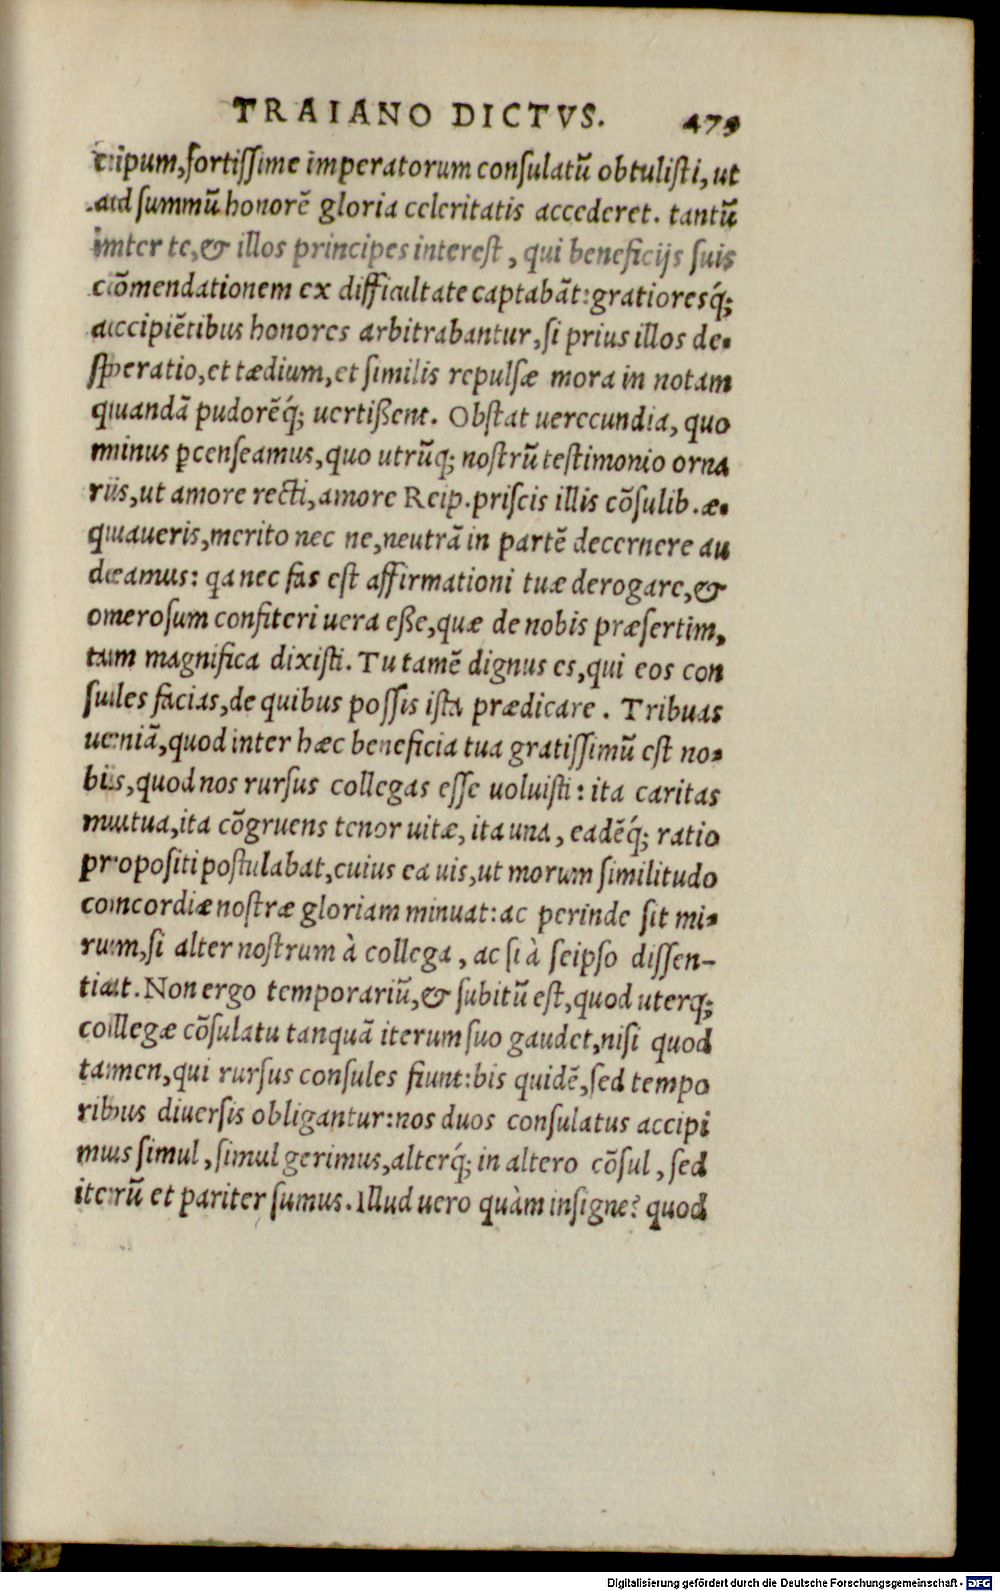 TRAIANO DICTVS. 479
cipum,fortissime imperatorum consulatū obtulisti, ut
ad summū honorē gloria celeritatis accederet. tantū
inter te,& illos principes interest, qui beneficijs suis
cōmendationem ex difficultate captabāt:gratioresq́;
accipiētibus honores arbitrabantur,si prius illos de-
speratio,et tædium,et similis repulsæ mora in notam
quandā pudorēq́; uertißent. Obstat uerecundia, quo
minus ꝑcenseamus,quo utrūq; nostrū testimonio orna
ris,ut amore recti,amore Reip.priscis illis cōsulib.æ-
quaueris,merito nec ne,neutrā in partē decernere au
deamus: qa nec fas est affirmationi tuæ derogare,&
onerosum confiteri uera eße,quæ de nobis præsertim,
tam magnifica dixisti. Tu tamē dignus es,qui eos con
sules facias,de quibus possis ista prædicare. Tribuas
ueniā,quod inter hæc beneficia tua gratissimū est no-
bis,quod nos rursus collegas esse uoluisti: ita caritas
mutua,ita cōgruens tenor uitæ, ita una, eadēq́; ratio
propositi postulabat,cuius ea uis,ut morum similitudo
concordiæ nostræ gloriam minuat:ac perinde sit mi-
rum,si alter nostrum à collega, ac si à seipso dissen-
tiat. Non ergo temporariū,& subitū est,quod uterq;
collegæ cōsulatu tanquā iterum suo gaudet,nisi quod
tamen,qui rursus consules fiunt:bis quidē,sed tempo
ribus diuersis obligantur:nos duos consulatus accipi
mus simul,simul gerimus,alterq́; in altero cōsul, sed
iterū et pariter sumus. Illud uero quàm insigne? quod
Digitalisierung gefördert durch die Deutsche Forschungsgemeinschaft - DFG